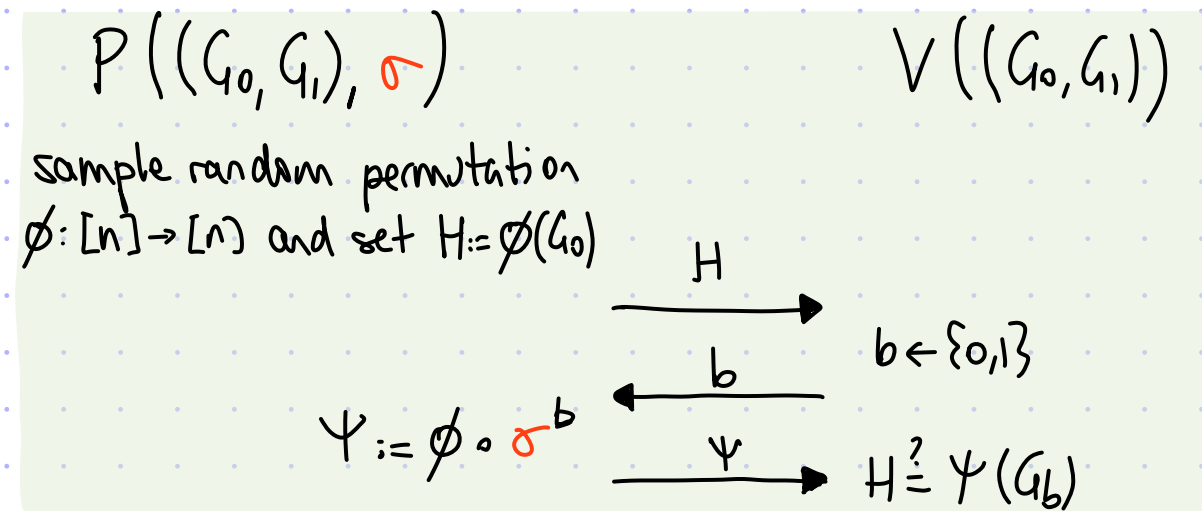 P((G₀, G₁), σ)
V((G₀, G₁))
sample random permutation
ø: [n] → [n] and set H := ø(G₀)
H
b ← {0,1}
b
Ψ := ø ∘ σᵇ
Ψ
H ≟ Ψ(G_b)